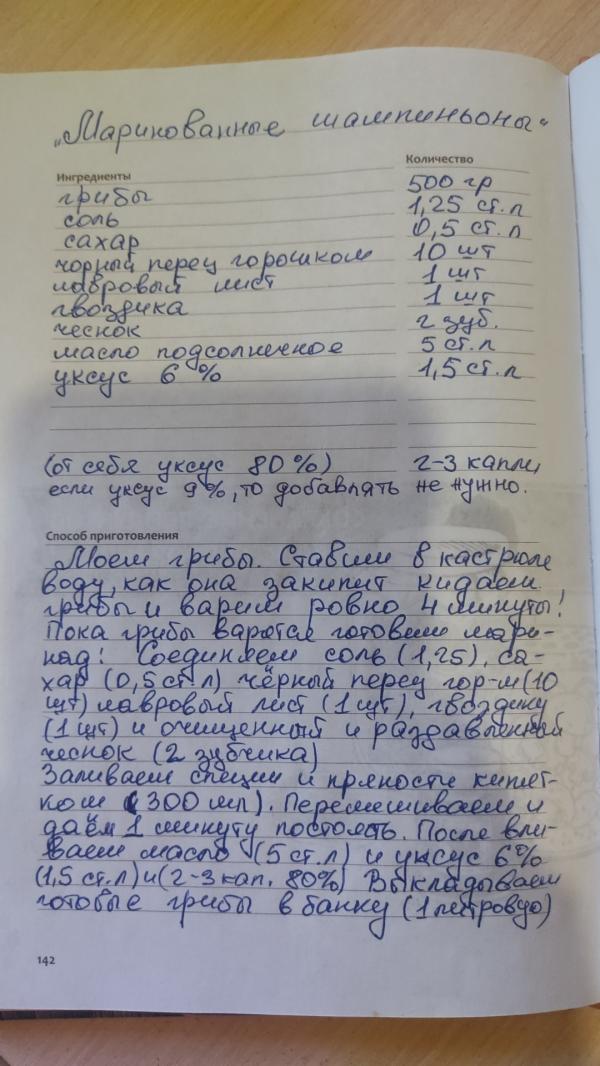 „Маринованные шампиньоны"
Ингредиенты Количество
грибы 500 гр
соль 1,25 ст.л
сахар 0,5 ст.л
чорный перец горошком 10 шт
лавровый лист 1 шт
гвоздика 1 шт
чеснок 2 зуб.
масло подсолнечное 5 ст.л
уксус 6% 1,5 ст.л
(от себя уксус 80%) 2-3 капли,
если уксус 9%, то добавлять не нужно.
Способ приготовления
Моем грибы. Ставим в кастрюле
воду, как она закипит кидаем
грибы и варим ровно 4 минуты!
Пока грибы варятся готовим мари-
над! Соединяем соль (1,25), са-
хар (0,5 ст.л) чёрный перец гор-м (10
шт) лавровый лист (1 шт), гвоздику
(1 шт) и очищенный и раздавленный
чеснок (2 зубчика)
Заливаем специи и пряности кипят-
ком (300 мл). Перемешиваем и
даём 1 минуту постоять. После вли-
ваем масло (5 ст.л) и уксус 6%
(1,5 ст.л) и (2-3 кап. 80%) Выкладываем
готовые грибы в банку (1 литровую)
142